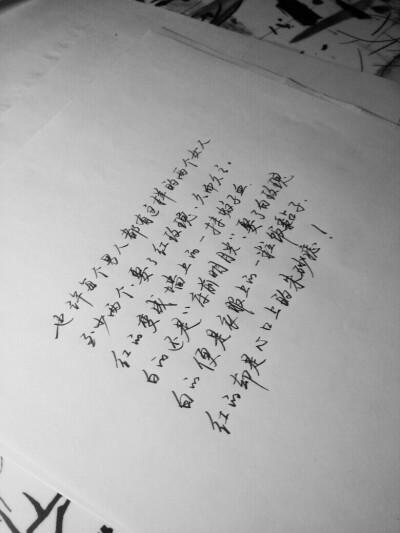 也许每个男人都有过这样的两个女人
至少两个.娶了红玫瑰,久而久之.
红的变成墙上的一抹蚊子血
白的还是“床前明月光”.娶了白玫瑰
白的便是衣服上的一粒饭黏子.
红的却是心口上的朱砂痣!